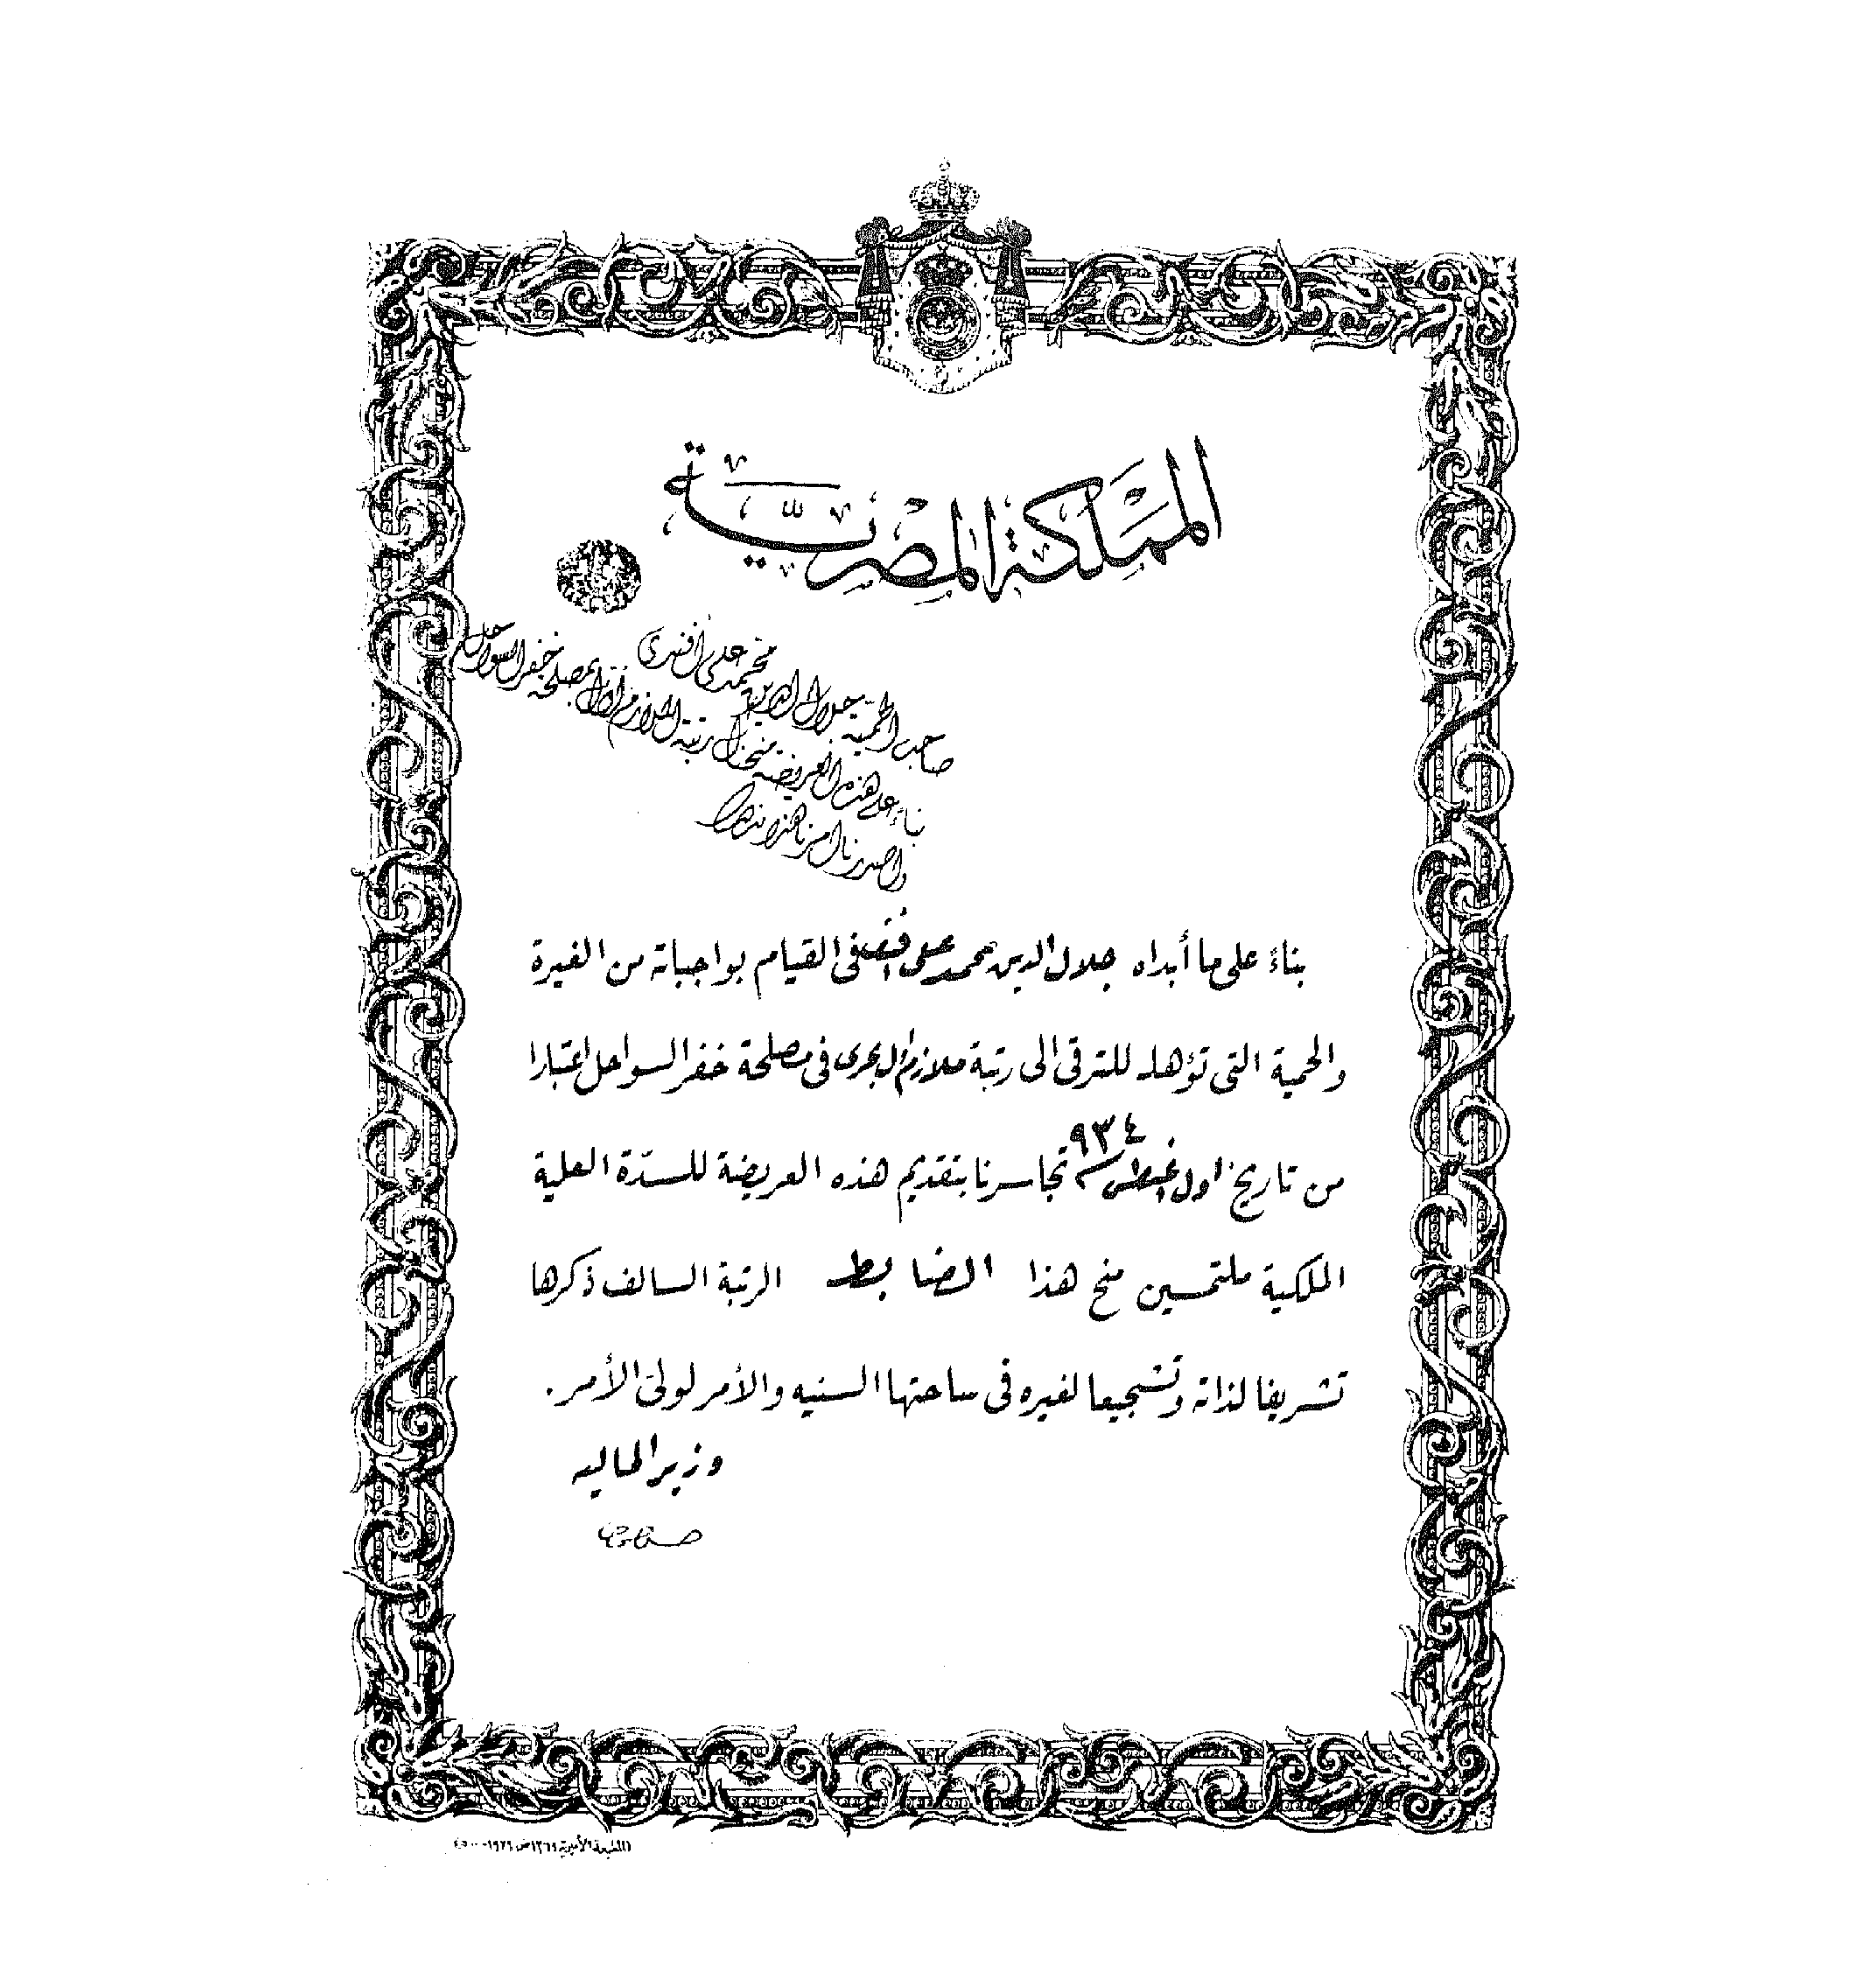 المملكة المصرية
محمد على أفندى
صاحب الحمية جلال الدين
بناء على هذه العريضة منحناك رتبة الملازم أول بمصلحة خفر السواحل
واصدرنا امرنا هذا
بناء على ما أبداه جلال الدين محمد على افندى فى القيام بواجباته من الغيرة
والحمية التى تؤهله للترقى الى رتبة ملازم أول بحرى فى مصلحة خفر السواحل اعتبارا
من تاريخ اول اغسطس سنة ٩٣٤ تجاسرنا بتقديم هذه العريضة للسدّة العلية
الملكية ملتمسين منح هذا الضابط الرتبة السالف ذكرها
تشريفا لذاته وتشجيعا لغيره فى ساحتها السنيه والأمر لولىّ الأمر.
وزير الماليه
(المطبعة الأميرية